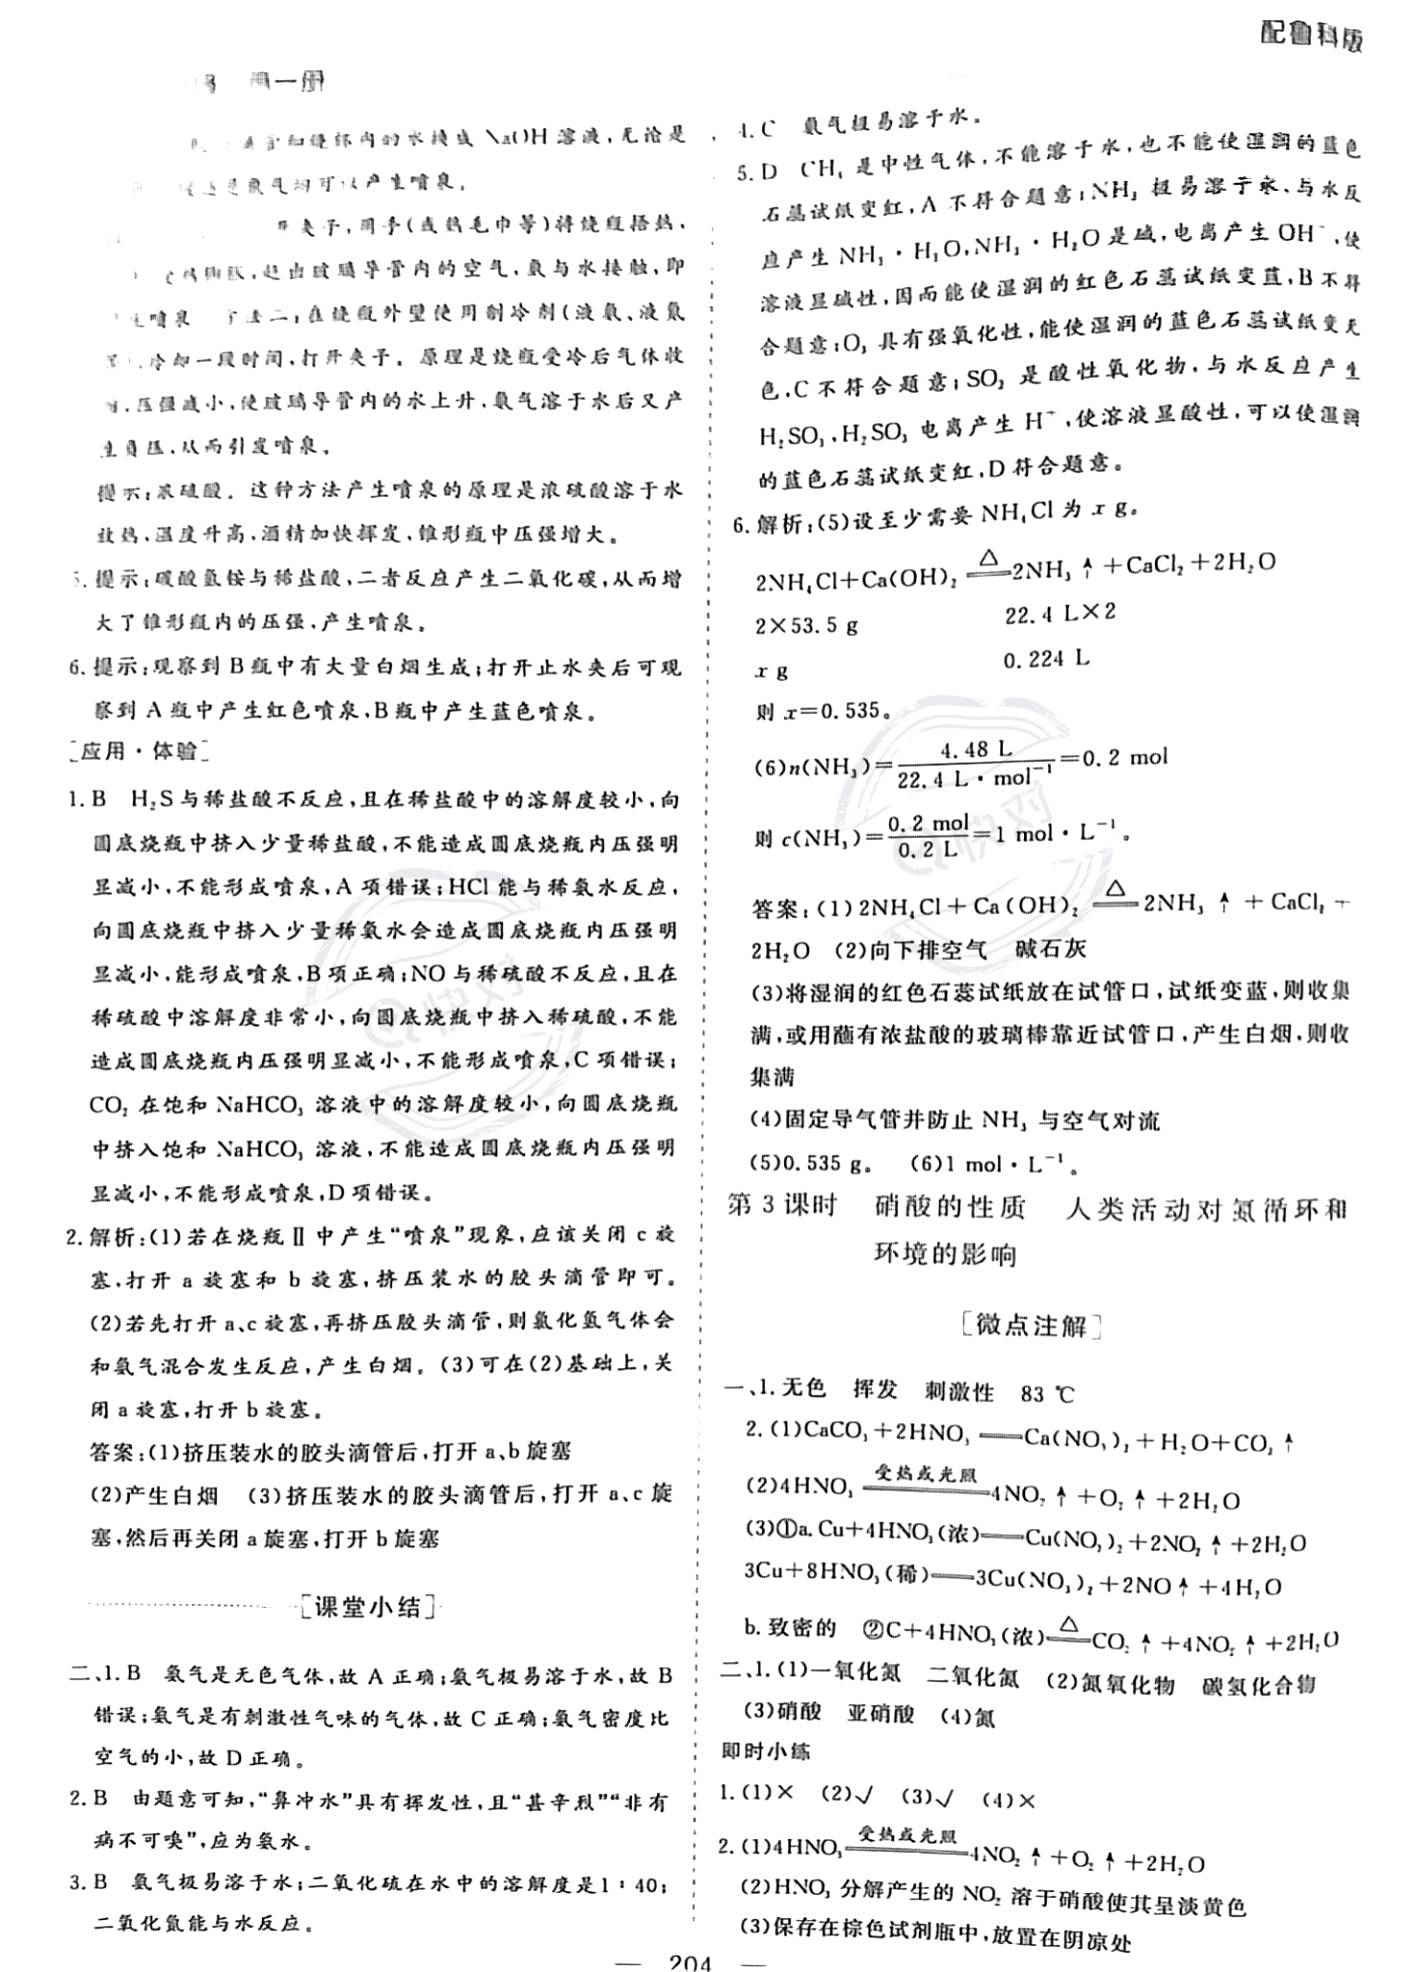 配鲁科版
第一册
和烧杯内的水换成 NaOH 溶液,无论是
氨气均可以产生喷泉。
夹子,用手(或热毛巾等)将烧瓶捂热,
膨胀,赶出玻璃导管内的空气,氨与水接触,即
喷泉 方法二:在烧瓶外壁使用制冷剂(液氨、液氮
冷却一段时间,打开夹子。原理是烧瓶受冷后气体收
,压强减小,使玻璃导管内的水上升,氨气溶于水后又产
生负压,从而引发喷泉。
提示:浓硫酸。这种方法产生喷泉的原理是浓硫酸溶于水
放热,温度升高,酒精加快挥发,锥形瓶中压强增大。
5.提示:碳酸氢铵与稀盐酸,二者反应产生二氧化碳,从而增
大了锥形瓶内的压强,产生喷泉。
6.提示:观察到 B 瓶中有大量白烟生成;打开止水夹后可观
察到 A 瓶中产生红色喷泉,B 瓶中产生蓝色喷泉。
[应用·体验]
1. B H₂S 与稀盐酸不反应,且在稀盐酸中的溶解度较小,向
圆底烧瓶中挤入少量稀盐酸,不能造成圆底烧瓶内压强明
显减小,不能形成喷泉,A 项错误;HCl 能与稀氨水反应,
向圆底烧瓶中挤入少量稀氨水会造成圆底烧瓶内压强明
显减小,能形成喷泉,B 项正确;NO 与稀硫酸不反应,且在
稀硫酸中溶解度非常小,向圆底烧瓶中挤入稀硫酸,不能
造成圆底烧瓶内压强明显减小,不能形成喷泉,C 项错误;
CO₂ 在饱和 NaHCO₃ 溶液中的溶解度较小,向圆底烧瓶
中挤入饱和 NaHCO₃ 溶液,不能造成圆底烧瓶内压强明
显减小,不能形成喷泉,D 项错误。
2.解析:(1)若在烧瓶Ⅱ中产生“喷泉”现象,应该关闭 c 旋
塞,打开 a 旋塞和 b 旋塞,挤压装水的胶头滴管即可。
(2)若先打开 a、c 旋塞,再挤压胶头滴管,则氯化氢气体会
和氨气混合发生反应,产生白烟。(3)可在(2)基础上,关
闭 a 旋塞,打开 b 旋塞。
答案:(1)挤压装水的胶头滴管后,打开 a、b 旋塞
(2)产生白烟 (3)挤压装水的胶头滴管后,打开 a、c 旋
塞,然后再关闭 a 旋塞,打开 b 旋塞
[课堂小结]
二、1. B 氨气是无色气体,故 A 正确;氨气极易溶于水,故 B
错误;氨气是有刺激性气味的气体,故 C 正确;氨气密度比
空气的小,故 D 正确。
2. B 由题意可知,“鼻冲水”具有挥发性,且“甚辛烈”“非有
病不可嗅”,应为氨水。
3. B 氨气极易溶于水;二氧化硫在水中的溶解度是1∶40;
二氧化氮能与水反应。
4. C 氨气极易溶于水。
5. D CH₄ 是中性气体,不能溶于水,也不能使湿润的蓝色
石蕊试纸变红,A 不符合题意;NH₃ 极易溶于水,与水反
应产生 NH₃·H₂O,NH₃·H₂O 是碱,电离产生 OH⁻,使
溶液显碱性,因而能使湿润的红色石蕊试纸变蓝,B 不符
合题意;O₃ 具有强氧化性,能使湿润的蓝色石蕊试纸变无
色,C 不符合题意;SO₂ 是酸性氧化物,与水反应产生
H₂SO₃,H₂SO₃ 电离产生 H⁺,使溶液显酸性,可以使湿润
的蓝色石蕊试纸变红,D 符合题意。
6.解析:(5)设至少需要 NH₄Cl 为 x g。
2NH₄Cl+Ca(OH)₂ =△= 2NH₃↑+CaCl₂+2H₂O
2×53.5 g 22.4 L×2
x g 0.224 L
则 x=0.535。
(6)n(NH₃)=4.48 L/22.4 L·mol⁻¹=0.2 mol
则 c(NH₃)=0.2 mol/0.2 L=1 mol·L⁻¹。
答案:(1)2NH₄Cl+Ca(OH)₂ =△= 2NH₃↑+CaCl₂+
2H₂O (2)向下排空气 碱石灰
(3)将湿润的红色石蕊试纸放在试管口,试纸变蓝,则收集
满,或用蘸有浓盐酸的玻璃棒靠近试管口,产生白烟,则收
集满
(4)固定导气管并防止 NH₃ 与空气对流
(5)0.535 g。 (6)1 mol·L⁻¹。
第 3 课时 硝酸的性质 人类活动对氮循环和
环境的影响
[微点注解]
一、1.无色 挥发 刺激性 83 ℃
2.(1)CaCO₃+2HNO₃══Ca(NO₃)₂+H₂O+CO₂↑
(2)4HNO₃ =受热或光照= 4NO₂↑+O₂↑+2H₂O
(3)①a.Cu+4HNO₃(浓)══Cu(NO₃)₂+2NO₂↑+2H₂O
3Cu+8HNO₃(稀)══3Cu(NO₃)₂+2NO↑+4H₂O
b.致密的 ②C+4HNO₃(浓) =△= CO₂↑+4NO₂↑+2H₂O
二、1.(1)一氧化氮 二氧化氮 (2)氮氧化物 碳氢化合物
(3)硝酸 亚硝酸 (4)氮
即时小练
1.(1)× (2)√ (3)√ (4)×
2.(1)4HNO₃ =受热或光照= 4NO₂↑+O₂↑+2H₂O
(2)HNO₃ 分解产生的 NO₂ 溶于硝酸使其呈淡黄色
(3)保存在棕色试剂瓶中,放置在阴凉处
— 204 —